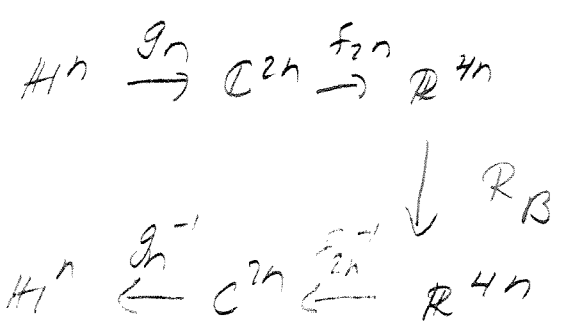 ℍⁿ →^{gₙ} ℂ²ⁿ →^{f₂ₙ} ℝ⁴ⁿ
↓ R_B
ℍⁿ ←^{gₙ⁻¹} ℂ²ⁿ ←^{f₂ₙ⁻¹} ℝ⁴ⁿ